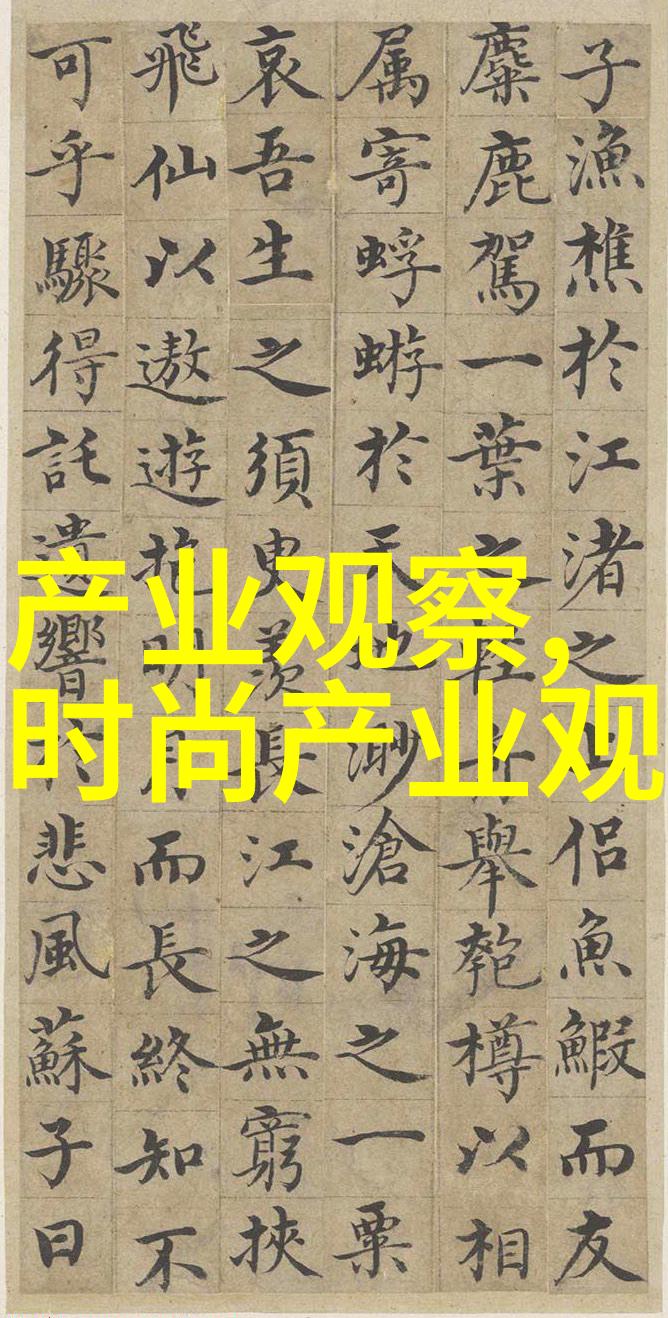 子漁樵於江渚之上侶魚鰕而友
麋鹿駕一葉之輕舟舉匏樽以相
属寄蜉蝣於天地渺滄海之一粟
哀吾生之須臾羨長江之無窮挾
飛仙以遨遊抱明月而長終知不
可乎驟得託遺響於悲風蘇子曰
产业观察,
时尚产业观